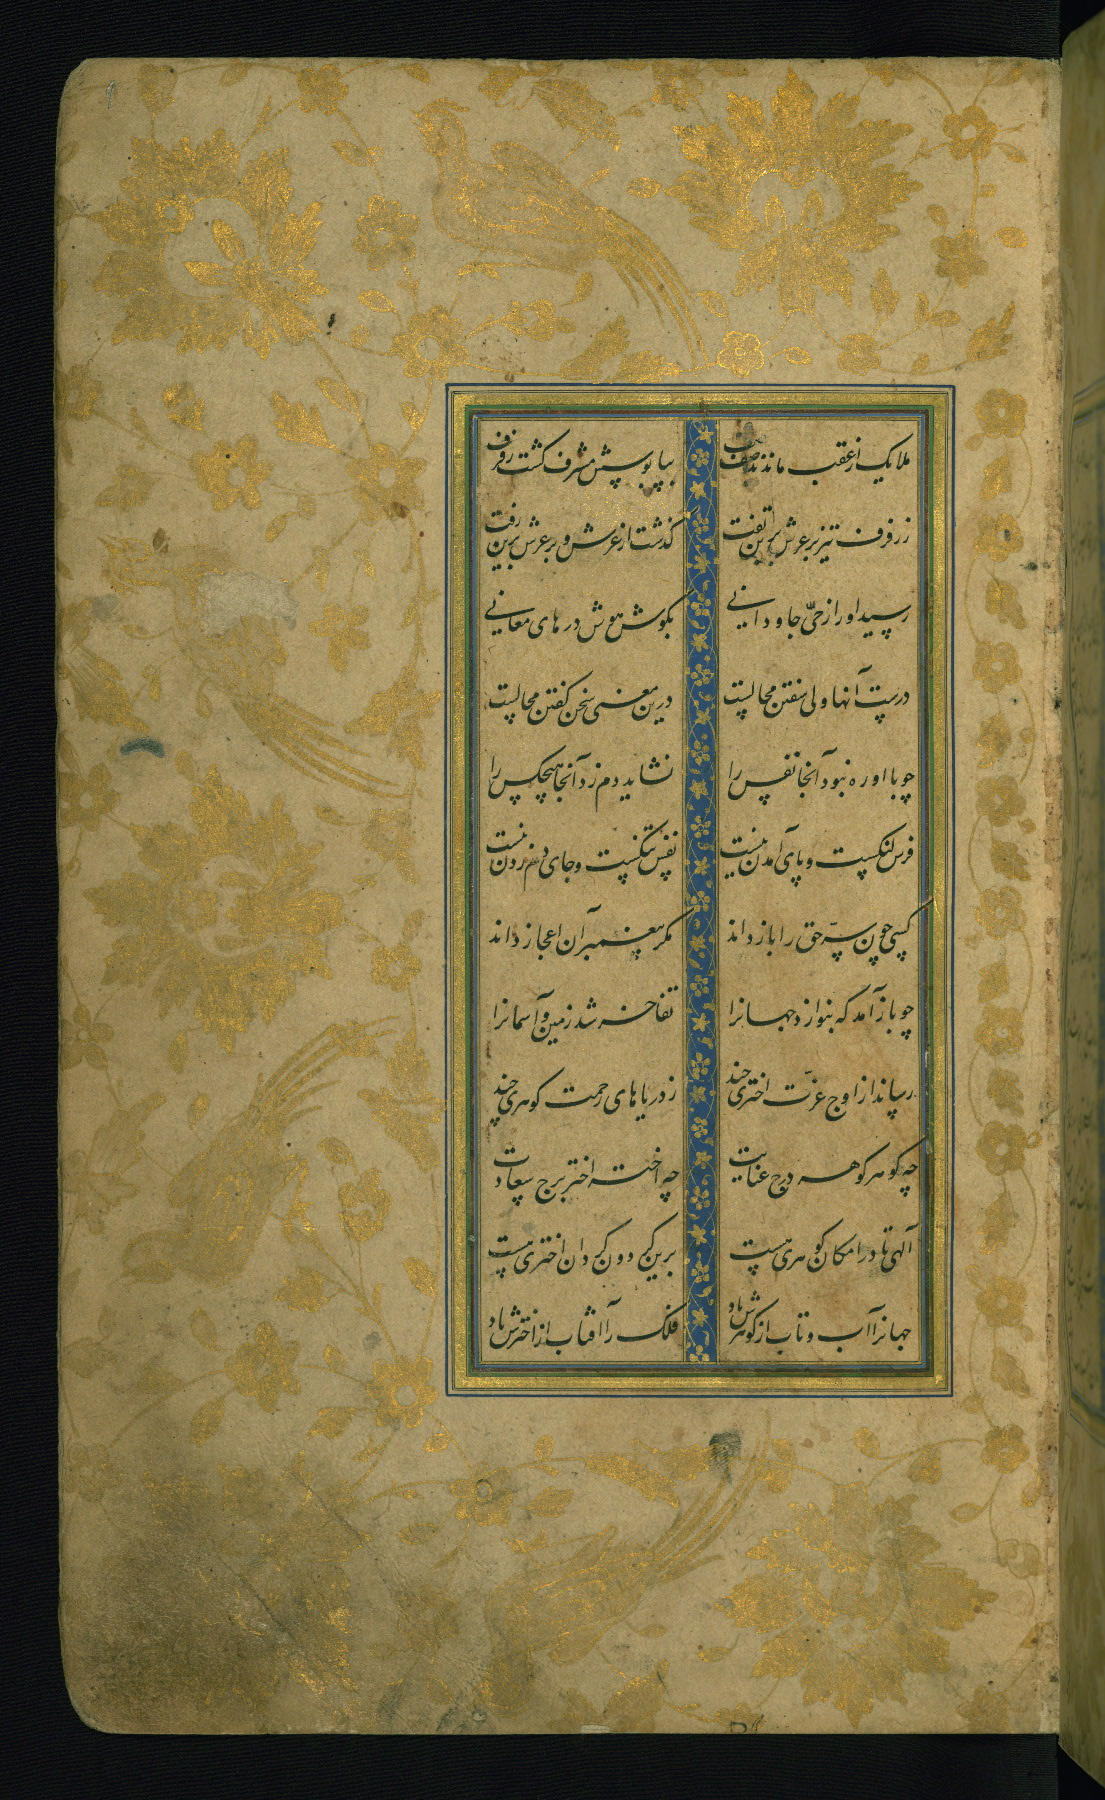 ملایک از عقب ماندند صف صف بپا بوسش مشرف گشت رفرف
ز رفرف تیز بر عرش برین تفت گذشت از عرش و بر عرش برین رفت
رسید او را ز حیّ جاودانی بگوش هوش درهای معانی
درست آنها ولی سفتن محالست درین معنی سخن گفتن محالست
چو با او ره نبود آنجا نفس را نشاید دم زد آنجا هیچکس را
فرس لنگست و پای آمدن نیست نفس تنگست و جای دم زدن نیست
کسی چون سرّ حق را باز داند مگر پیغمبر آن اعجاز داند
چو باز آمد که بنوازد جهانرا تفاخر شد زمین و آسمانرا
رساند از اوج عزّت اختری چند ز دریاهای رحمت گوهری چند
چه گوهر گوهر درج عنایت چه اختر اختر برج سعادت
الهی تا در امکان گوهری هست برین گردون گردان اختری هست
جهانرا آب و تاب از گوهرش باد فلک را آفتاب از اخترش باد